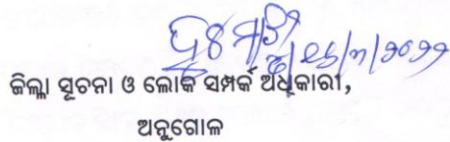 ୨୬/୩/୨୦୨୨
ଜିଲ୍ଲା ସୂଚନା ଓ ଲୋକ ସମ୍ପର୍କ ଅଧିକାରୀ,
ଅନୁଗୋଳ